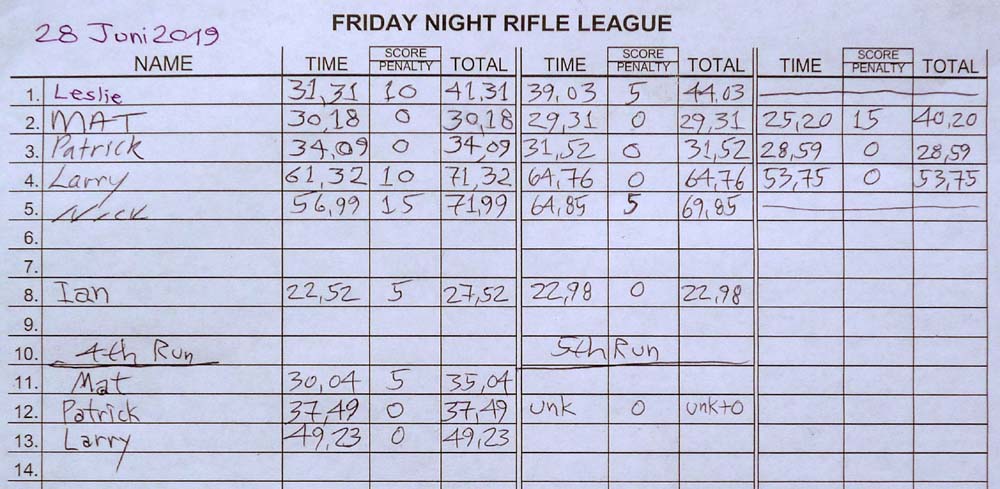 28 Juni 2019
FRIDAY NIGHT RIFLE LEAGUE
NAME TIME SCORE PENALTY TOTAL TIME SCORE PENALTY TOTAL TIME SCORE PENALTY TOTAL
1. Leslie 31,31 10 41,31 39,03 5 44,03
2. MAT 30,18 0 30,18 29,31 0 29,31 25,20 15 40,20
3. Patrick 34,09 0 34,09 31,52 0 31,52 28,59 0 28,59
4. Larry 61,32 10 71,32 64,76 0 64,76 53,75 0 53,75
5. Nick 56,99 15 71,99 64,85 5 69,85
6.
7.
8. Ian 22,52 5 27,52 22,98 0 22,98
9.
10. 4th Run 5th Run
11. Mat 30,04 5 35,04
12. Patrick 37,49 0 37,49 unk 0 unk+0
13. Larry 49,23 0 49,23
14.